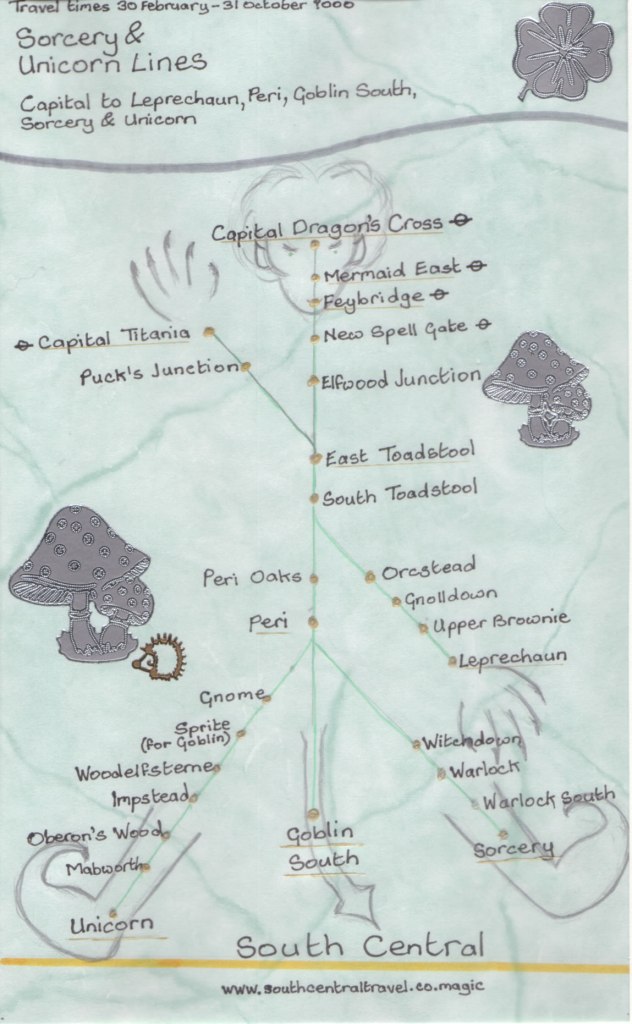 Travel times 30 February - 31 October 9000
Sorcery &
Unicorn Lines
Capital to Leprechaun, Peri, Goblin South,
Sorcery & Unicorn
Capital Dragon's Cross
Mermaid East
Feybridge
New Spell Gate
Capital Titania
Puck's Junction
Elfwood Junction
East Toadstool
South Toadstool
Peri Oaks
Orcstead
Gnolldown
Peri
Upper Brownie
Leprechaun
Gnome
Sprite
(for Goblin)
Witchdown
Woodelfsterne
Warlock
Impstead
Warlock South
Oberon's Wood
Goblin
South
Sorcery
Mabworth
Unicorn
South Central
www.southcentraltravel.co.magic